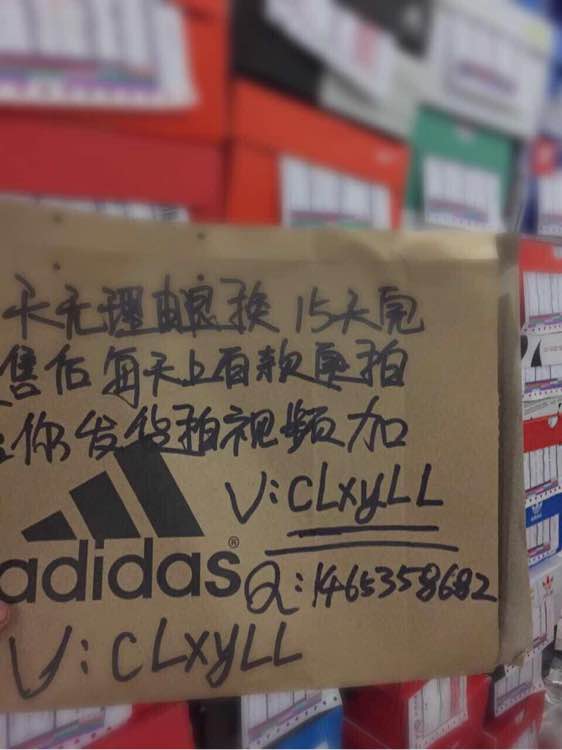 天无理由退换 15天完
售后每天上百款更拍
你发货拍视频加
V:CLxyLL
adidas®
Q:1465358682
V:CLxyLL